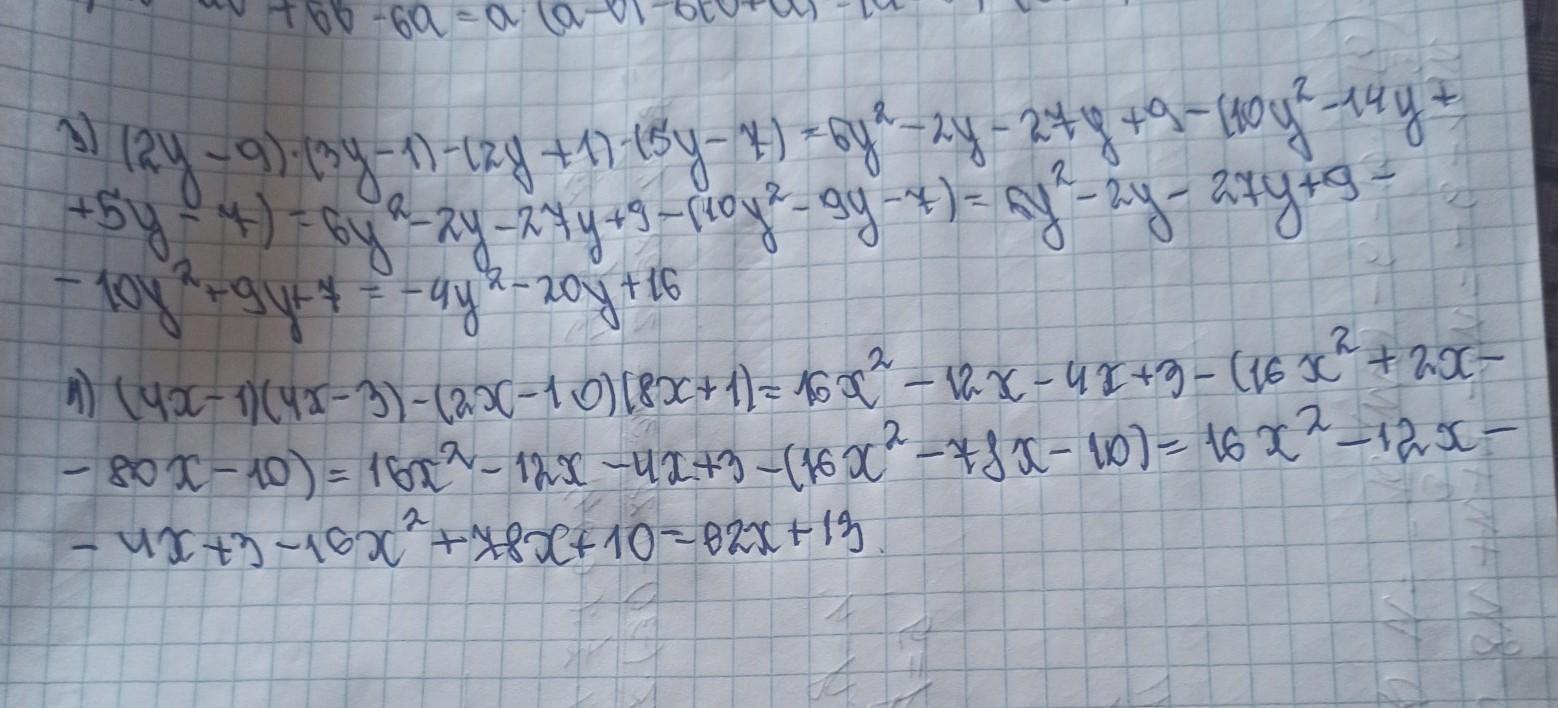 3) (2y-9)·(3y-1)-(2y+1)·(5y-7)=6y²-2y-27y+9-(10y²-14y+
+5y-7)=6y²-2y-27y+9-(10y²-9y-7)=6y²-2y-27y+9-
-10y²+9y+7=-4y²-20y+16
4) (4x-1)(4x-3)-(2x-10)(8x+1)=16x²-12x-4x+3-(16x²+2x-
-80x-10)=16x²-12x-4x+3-(16x²-78x-10)=16x²-12x-
-4x+3-16x²+78x+10=62x+13